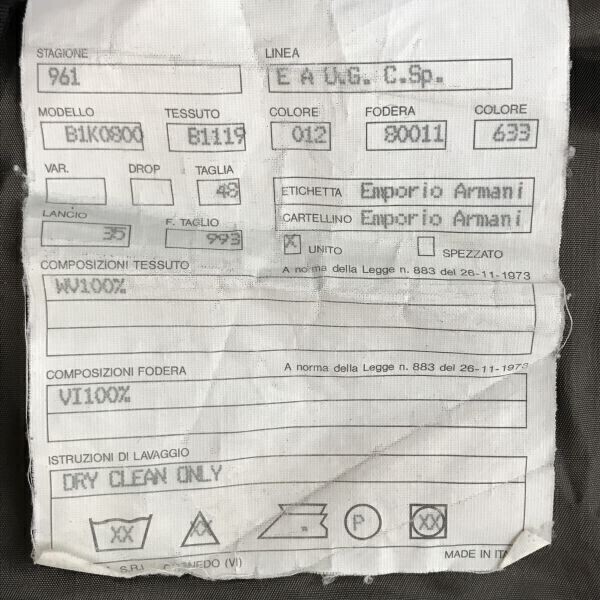 STAGIONE LINEA
961 E A U.G. C.Sp.
MODELLO TESSUTO COLORE FODERA COLORE
B1K0800 B1119 012 80011 633
VAR. DROP TAGLIA
48
ETICHETTA Emporio Armani
LANCIO F. TAGLIO
35 993
CARTELLINO Emporio Armani
X UNITO SPEZZATO
COMPOSIZIONI TESSUTO A norma della Legge n. 883 del 26-11-1973
WV100%
COMPOSIZIONI FODERA A norma della Legge n. 883 del 26-11-1973
VI100%
ISTRUZIONI DI LAVAGGIO
DRY CLEAN ONLY
XX XX P XX
MADE IN
S.R.L. (VI)